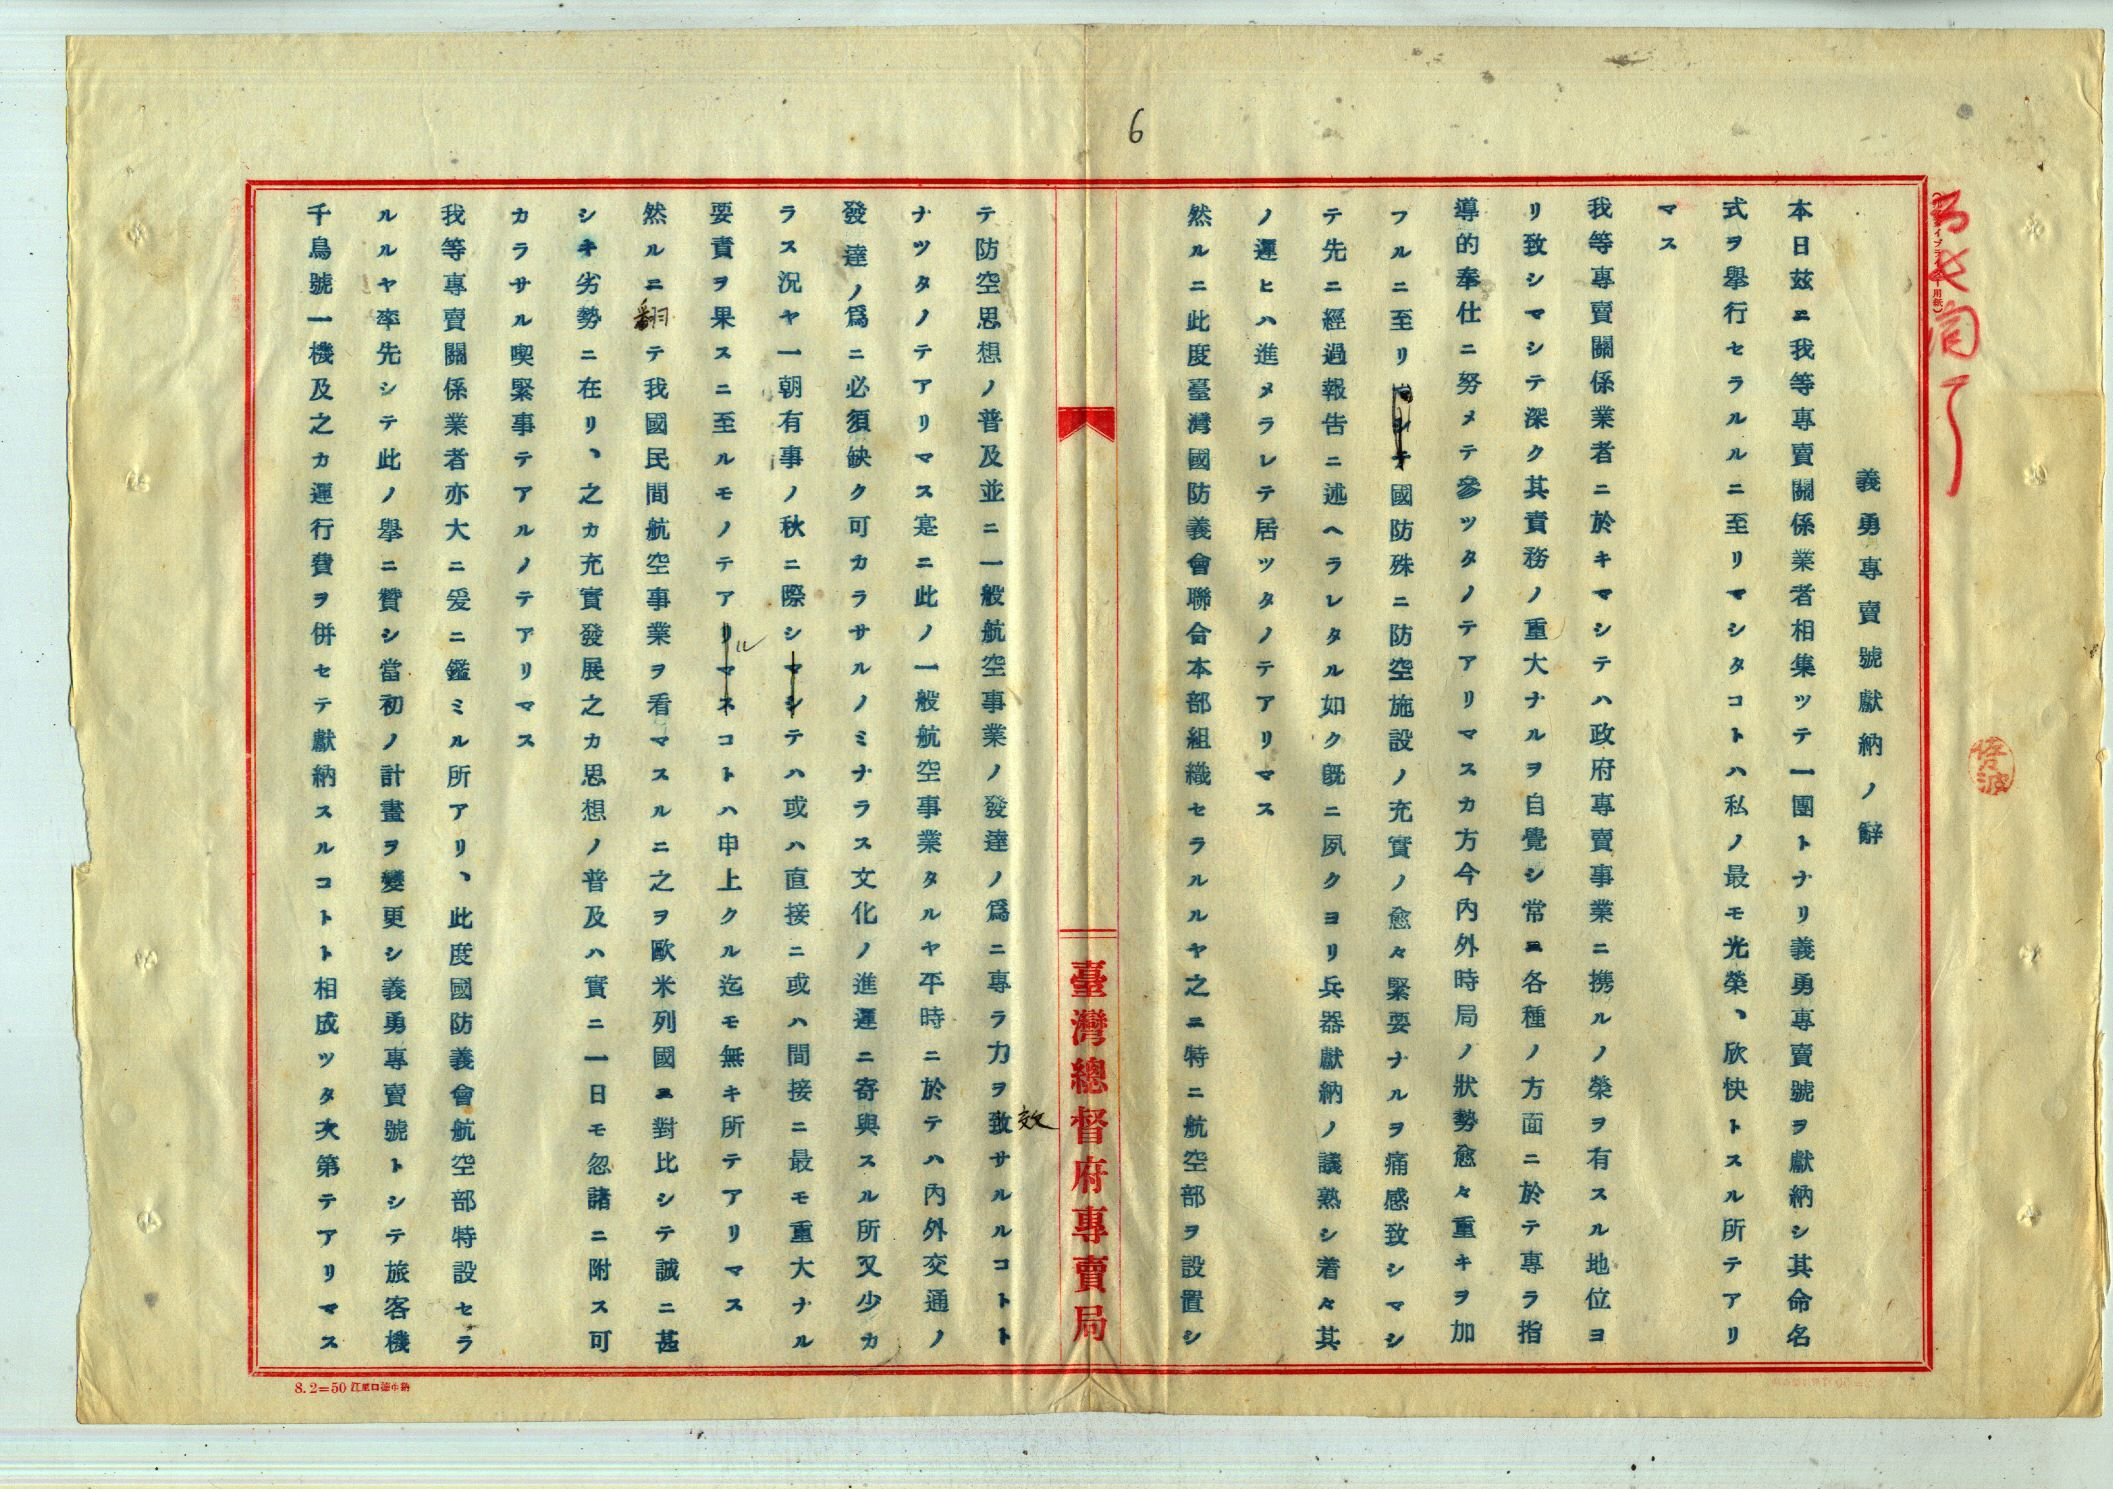 6
義勇專賣號獻納ノ辭
本日玆ニ我等專賣關係業者相集ツテ一團トナリ義勇專賣號ヲ獻納シ其命名
式ヲ擧行セラルルニ至リマシタコトハ私ノ最モ光榮、欣快トスル所テアリ
マス
我等專賣關係業者ニ於キマシテハ政府專賣事業ニ携ルノ榮ヲ有スル地位ヨ
リ致シマシテ深ク其責務ノ重大ナルヲ自覺シ常ニ各種ノ方面ニ於テ專ラ指
導的奉仕ニ努メテ參ツタノテアリマスカ方今內外時局ノ狀勢愈々重キヲ加
フルニ至リ國防殊ニ防空施設ノ充實ノ愈々緊要ナルヲ痛感致シマシ
テ先ニ經過報告ニ述ヘラレタル如ク旣ニ夙クヨリ兵器獻納ノ議熟シ着々其
ノ運ヒハ進メラレテ居ツタノテアリマス
然ルニ此度臺灣國防義會聯合本部組織セラルルヤ之ニ特ニ航空部ヲ設置シ
臺灣總督府專賣局
テ防空思想ノ普及並ニ一般航空事業ノ發達ノ爲ニ專ラ力ヲ致サルルコトト
效
ナツタノテアリマス寔ニ此ノ一般航空事業タルヤ平時ニ於テハ內外交通ノ
發達ノ爲ニ必須缺ク可カラサルノミナラス文化ノ進運ニ寄與スル所又少カ
ラス況ヤ一朝有事ノ秋ニ際シマシテハ或ハ直接ニ或ハ間接ニ最モ重大ナル
要責ヲ果スニ至ルモノテアリマスコトハ申上クル迄モ無キ所テアリマス
ル
然ルニ翻テ我國民間航空事業ヲ看マスルニ之ヲ歐米列國ニ對比シテ誠ニ甚
シキ劣勢ニ在リ、之カ充實發展之カ思想ノ普及ハ實ニ一日モ忽諸ニ附ス可
カラサル喫緊事テアルノテアリマス
我等專賣關係業者亦大ニ爰ニ鑑ミル所アリ、此度國防義會航空部特設セラ
ルルヤ率先シテ此ノ擧ニ贊シ當初ノ計畫ヲ變更シ義勇專賣號トシテ旅客機
千鳥號一機及之カ運行費ヲ併セテ獻納スルコトト相成ツタ次第テアリマス
8.2=50